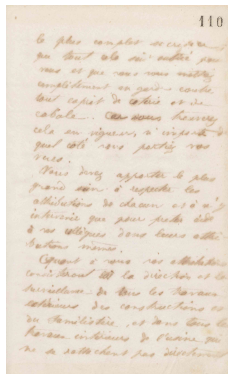 110
le plus complet
que tout cela soit entré pour
vous et que vous vous mettiez
complètement en garde contre
tout esprit de coterie et de
cabale.
cela en vigueur, n'importe de
quel côté vous portiez vos
vues.
Vous devez apporter le plus
grand soin à respecter les
attributions de chacun et à n'
intervenir que pour
à vos collègues dans leurs attri
butions mêmes.
Quant à vous vos attributions
consistent en la direction et la
surveillance de tous les travaux
extérieurs des constructions et
du familistère, et dans tous les
travaux intérieurs de l'usine qui
ne se rattachent pas directement